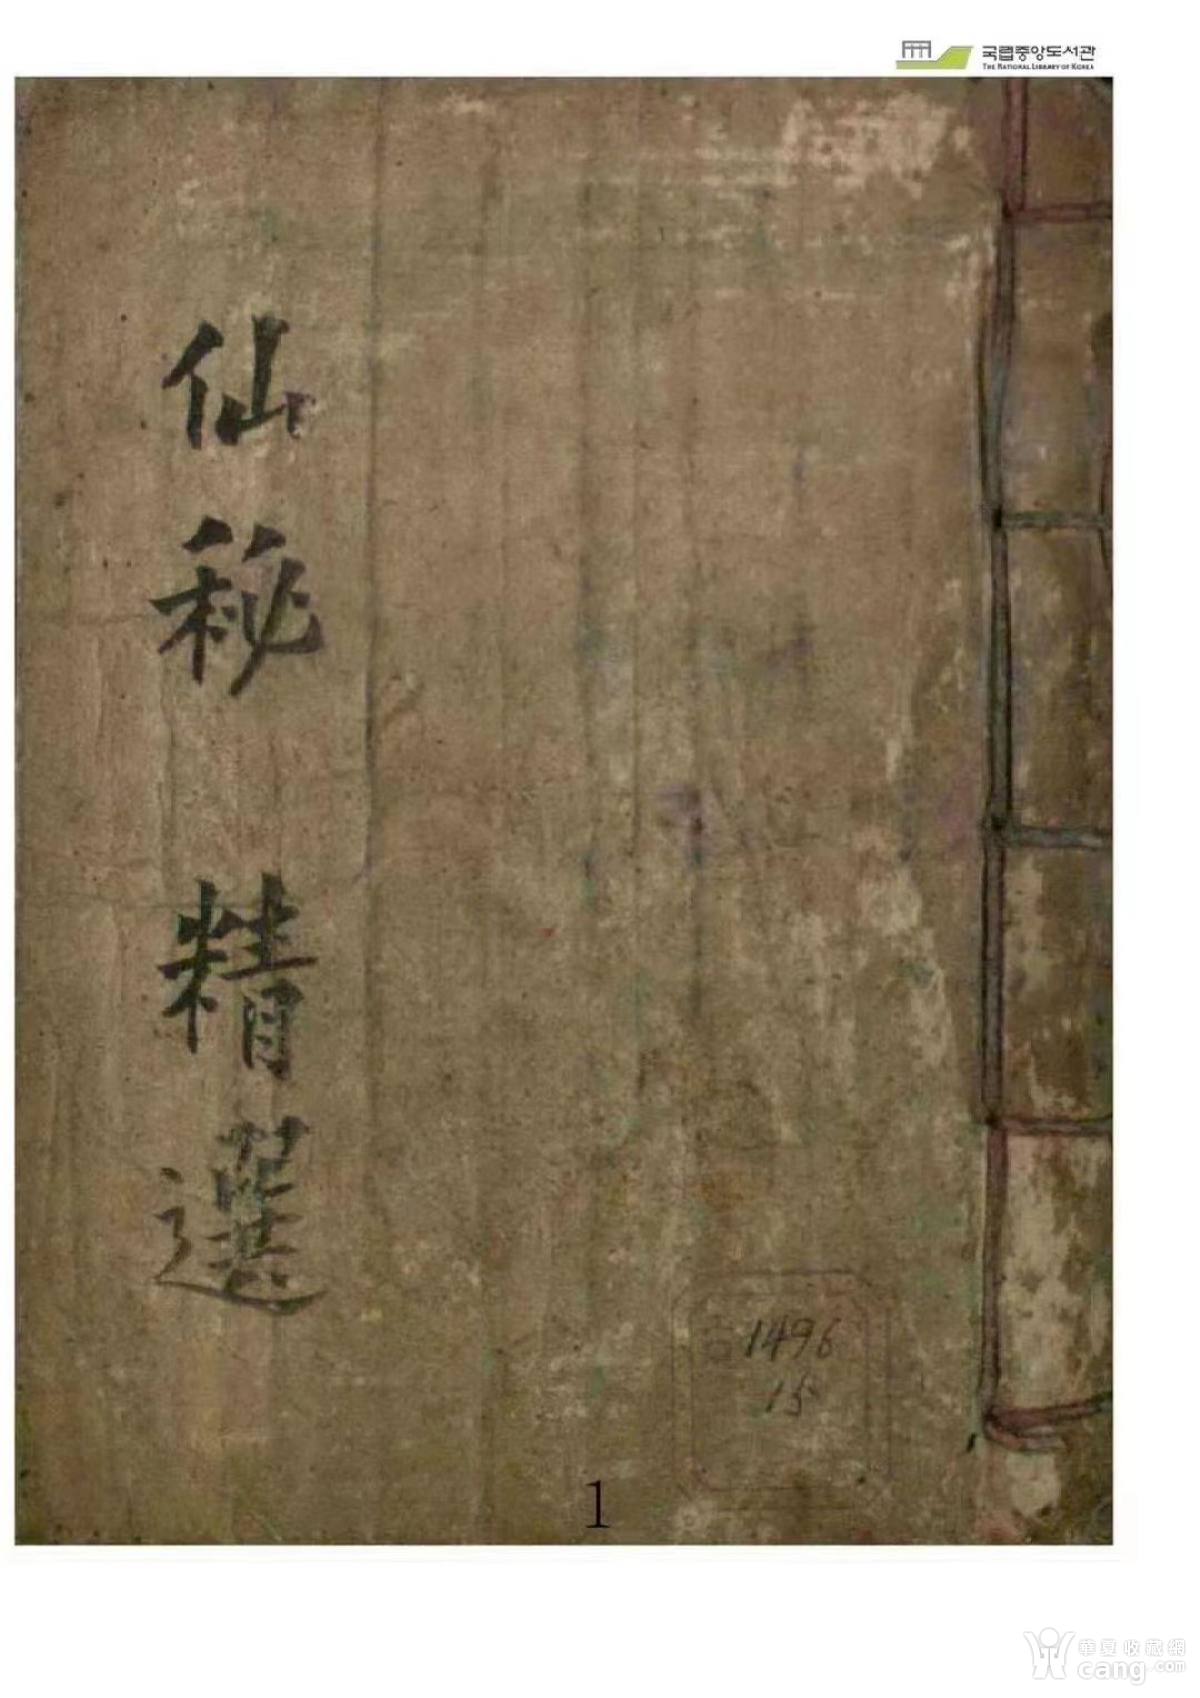 국립중앙도서관
THE NATIONAL LIBRARY OF KOREA
仙秘 精選
古1496
15
1
華夏收藏網
cang.com